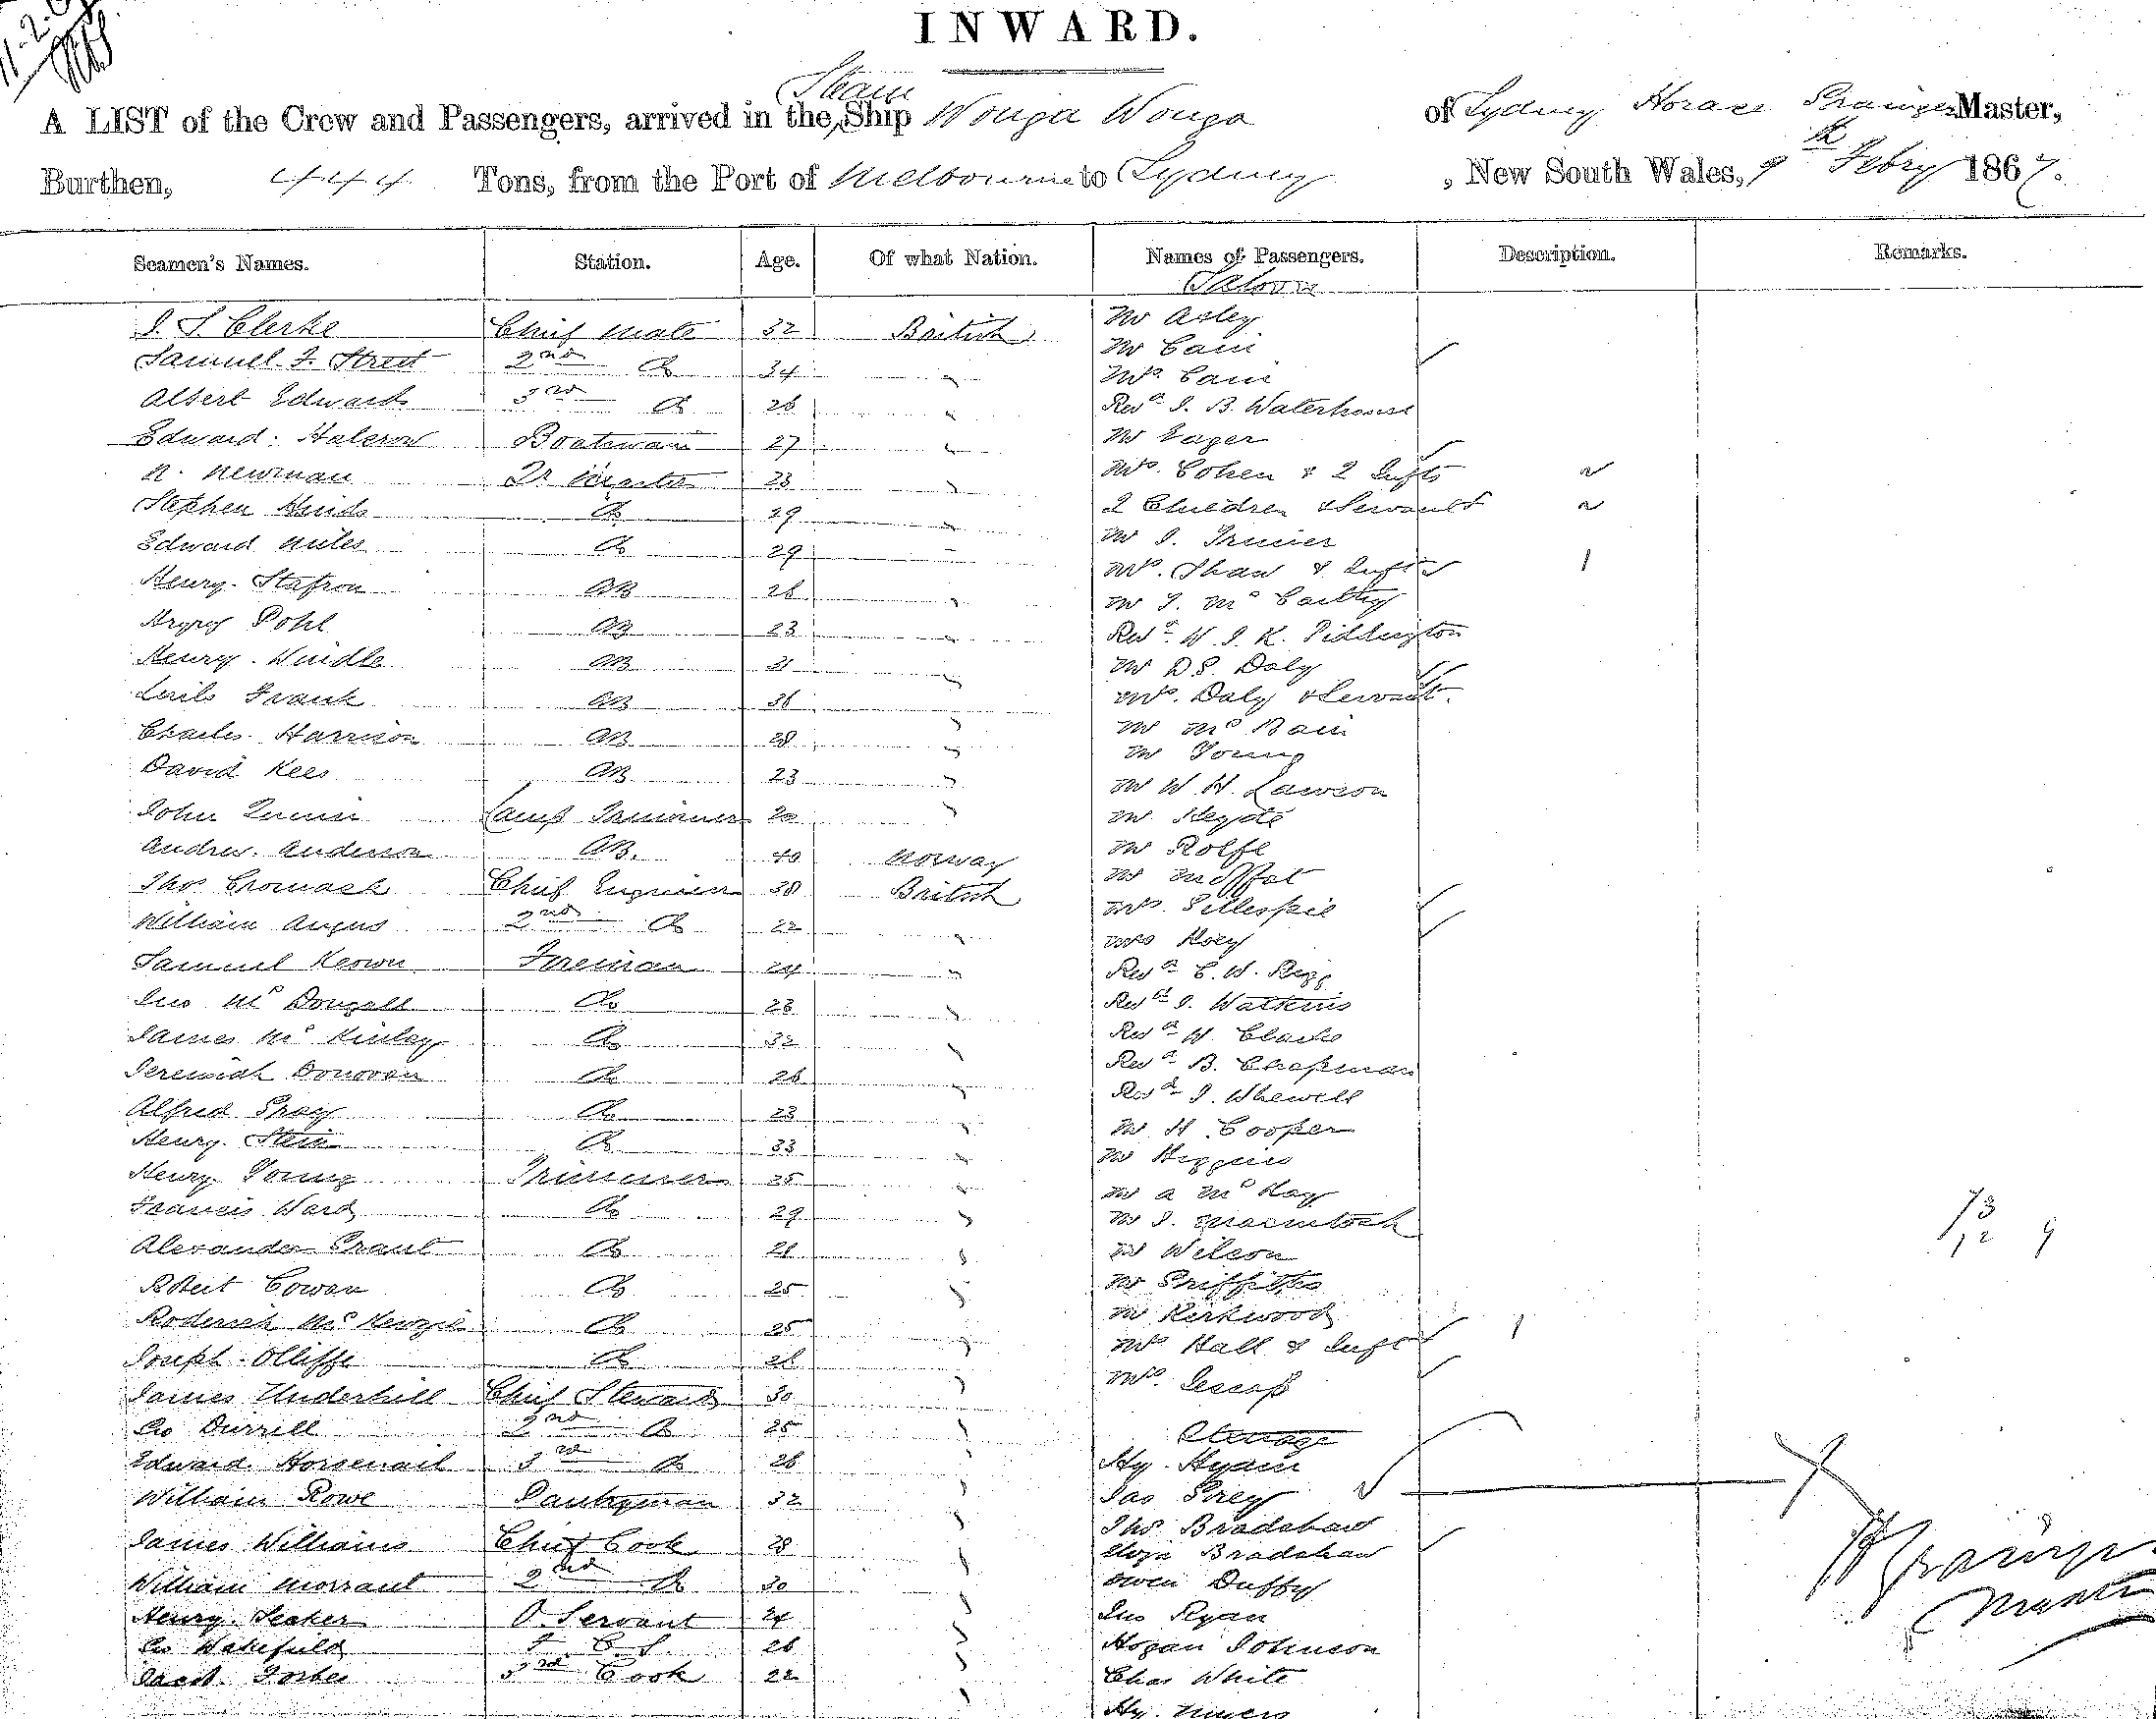 INWARD.
A LIST of the Crew and Passengers, arrived in the Steam Ship Wonga Wonga of Sydney Horace Master,
Burthen, 444 Tons, from the Port of Melbourne to Sydney, New South Wales, 9th Febry 1867.
Seamen's Names. Station. Age. Of what Nation. Names of Passengers. Description. Remarks.
Saloon
J. S. Clerke Chief Mate 32 British Mr Asley
Samuel J. Street 2nd Do 34 " Mr Cain
Mrs. Cain
Albert Edwards 3rd Do 26 " Revd J. B. Waterhouse
Edward Halcrow Boatswain 27 " Mr Eager
N. Newman Qr Master 23 " Mrs. Cohen & 2 Infts
Stephen Do 29 " 2 Children & Servant
Edward Miles Do 29 " Mr J.
Mrs. Shaw & Inft
Henry AB 26 " Mr J. McCarthy
Pohl AB 23 " Revd W. J. K. Piddington
Henry Windle AB " Mr D. Daly
Frank AB 36 Mrs. Daly & Servant
Charles Harrison AB 28 " Mr McBain
Mr Young
David Rees AB 23 " Mr W. H. Lawson
John Lamp Trimmer 20 " Mr
Andrew Anderson AB. 40 Norway Mr Rolfe
Thos Cromack Chief Engineer 38 British Mr Moffat
William Angus 2nd Do 22 " Mrs. Gillespie
Mrs Hoey
Samuel Keown Fireman 24 " Revd C. W. Rigg
Jno McDougall Do 23 " Revd J. Watkins
James McKinley Do 32 " Revd W. Clarke
Jeremiah Donovan Do 26 " Revd B. Chapman
Alfred Do 23 " Revd J. Whewell
Henry Stein Do 33 " Mr H Cooper
Mr Higgins
Henry Young Trimmer 25 " Mr A McKay
Francis Ward Do 29 " Mr J. Macintosh
Alexander Grant Do " Mr Wilson
Robert Cowan Do 25 " Mr Griffiths
Mr Kirkwood
Roderick McKenzie Do 25 " Mrs Hall & Inft
Joseph Olliffe Do " Mrs. Jessop
James Underhill Chief Steward 30 "
Geo Durrell 2nd Do 25 " Steerage
Edward Horsenail 3rd Do 26 " Hy. Hyam
William Rowe Pantryman 32 " Jas Grey
Thos Bradshaw
James Williams Chief Cook 28 " Eliza Bradshaw
William Morrant 2nd Do 30 " Owen Duffy
Henry O. Servant 24 " Jno Ryan
Geo Wakefield 26 " Hogan Johnson
Forbes 3rd Cook 22 " Chas White
Hy.
Master